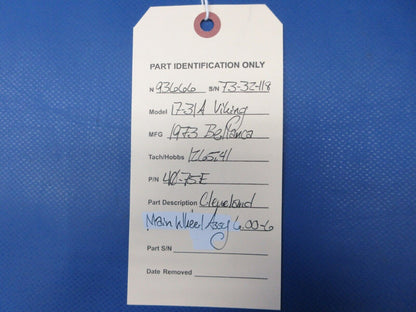 PART IDENTIFICATION ONLY
N 93666 S/N 73-32-118
Model 17-31A Viking
MFG 1973 Bellanca
Tach/Hobbs 1265.41
P/N 40-75E
Part Description Cleveland
Main Wheel Assy 6.00-6
Part S/N
Date Removed